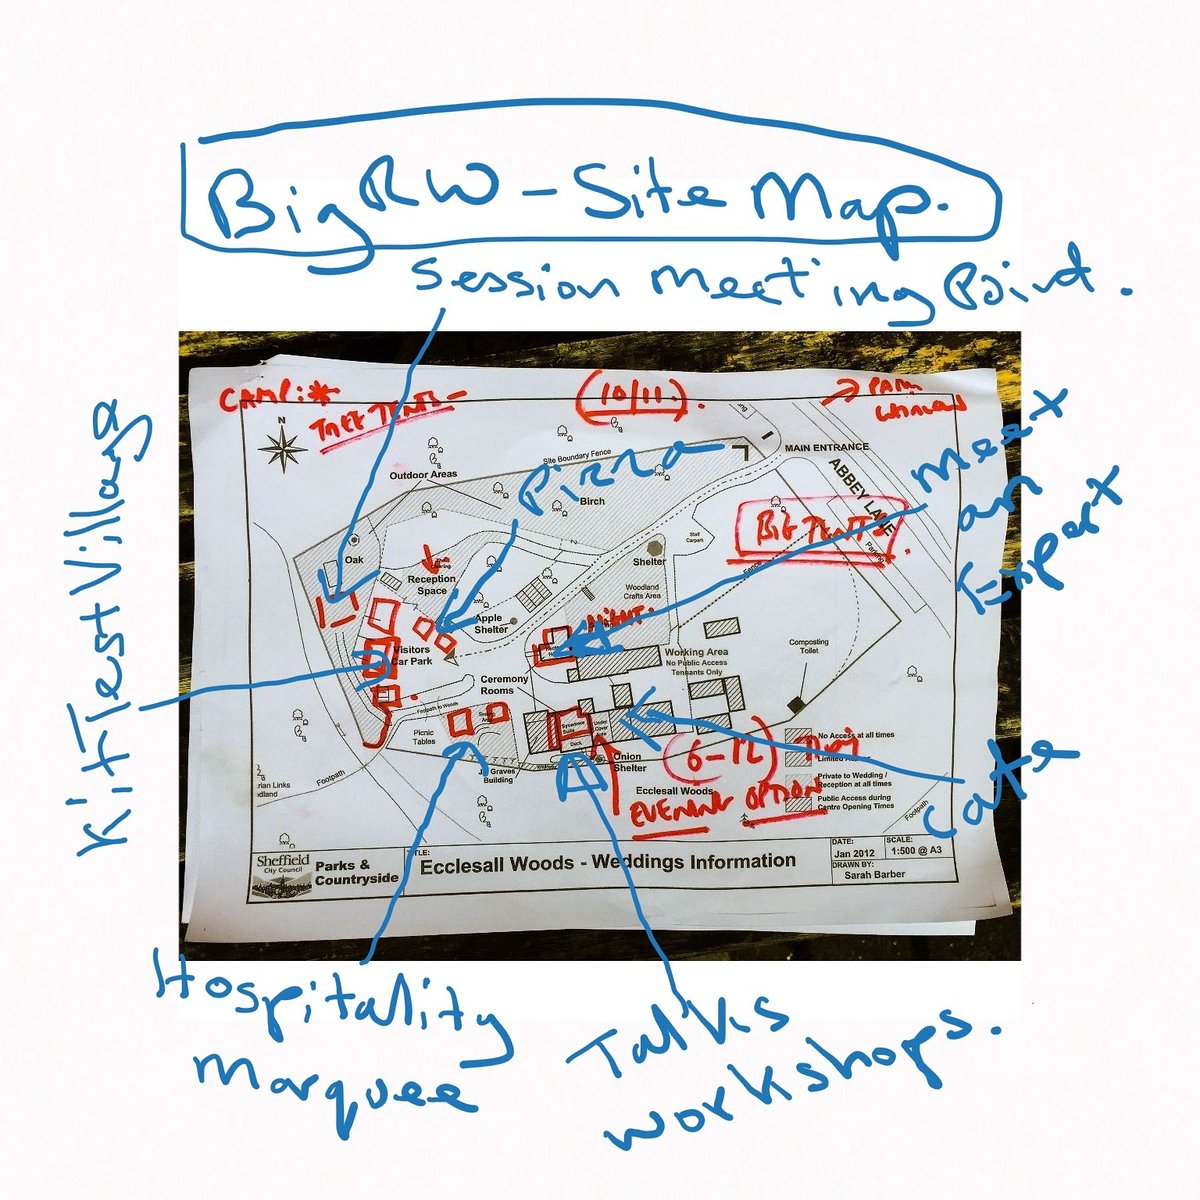 Big RW - Site Map.
Session Meeting Point.
CAMP: *
TREE TENTS -
(10/11).
N
MAIN ENTRANCE
ABBEY LANE
Site Boundary Fence
Outdoor Areas
Pizza
Meet
an
Expert
Birch
BIG TENTS.
Staff
Carpark
Oak
Shelter
Reception
Space
Woodland
Crafts Area
Apple
Shelter
Kit Test Village
Visitors
Car Park
Working Area
No Public Access
Tennants Only
Composting
Toilet
Ceremony
Rooms
Footpath to Woods
Picnic
Tables
Sycamore
Suite
Under
Cover
Area
Deck
JG Graves
Building
Onion
Shelter
(6-12)
No Access at all times
Limited Access
Private to Wedding /
Reception at all times
Public Access during
Centre Opening Times
Ecclesall Woods
EVENING OPTION
Cafe
Footpath
Footpath
Sheffield
City Council
Parks &
Countryside
TITLE:
Ecclesall Woods - Weddings Information
DATE:
Jan 2012
SCALE:
1:500 @ A3
DRAWN BY:
Sarah Barber
Hospitality
Marquee
Talks
Workshops.